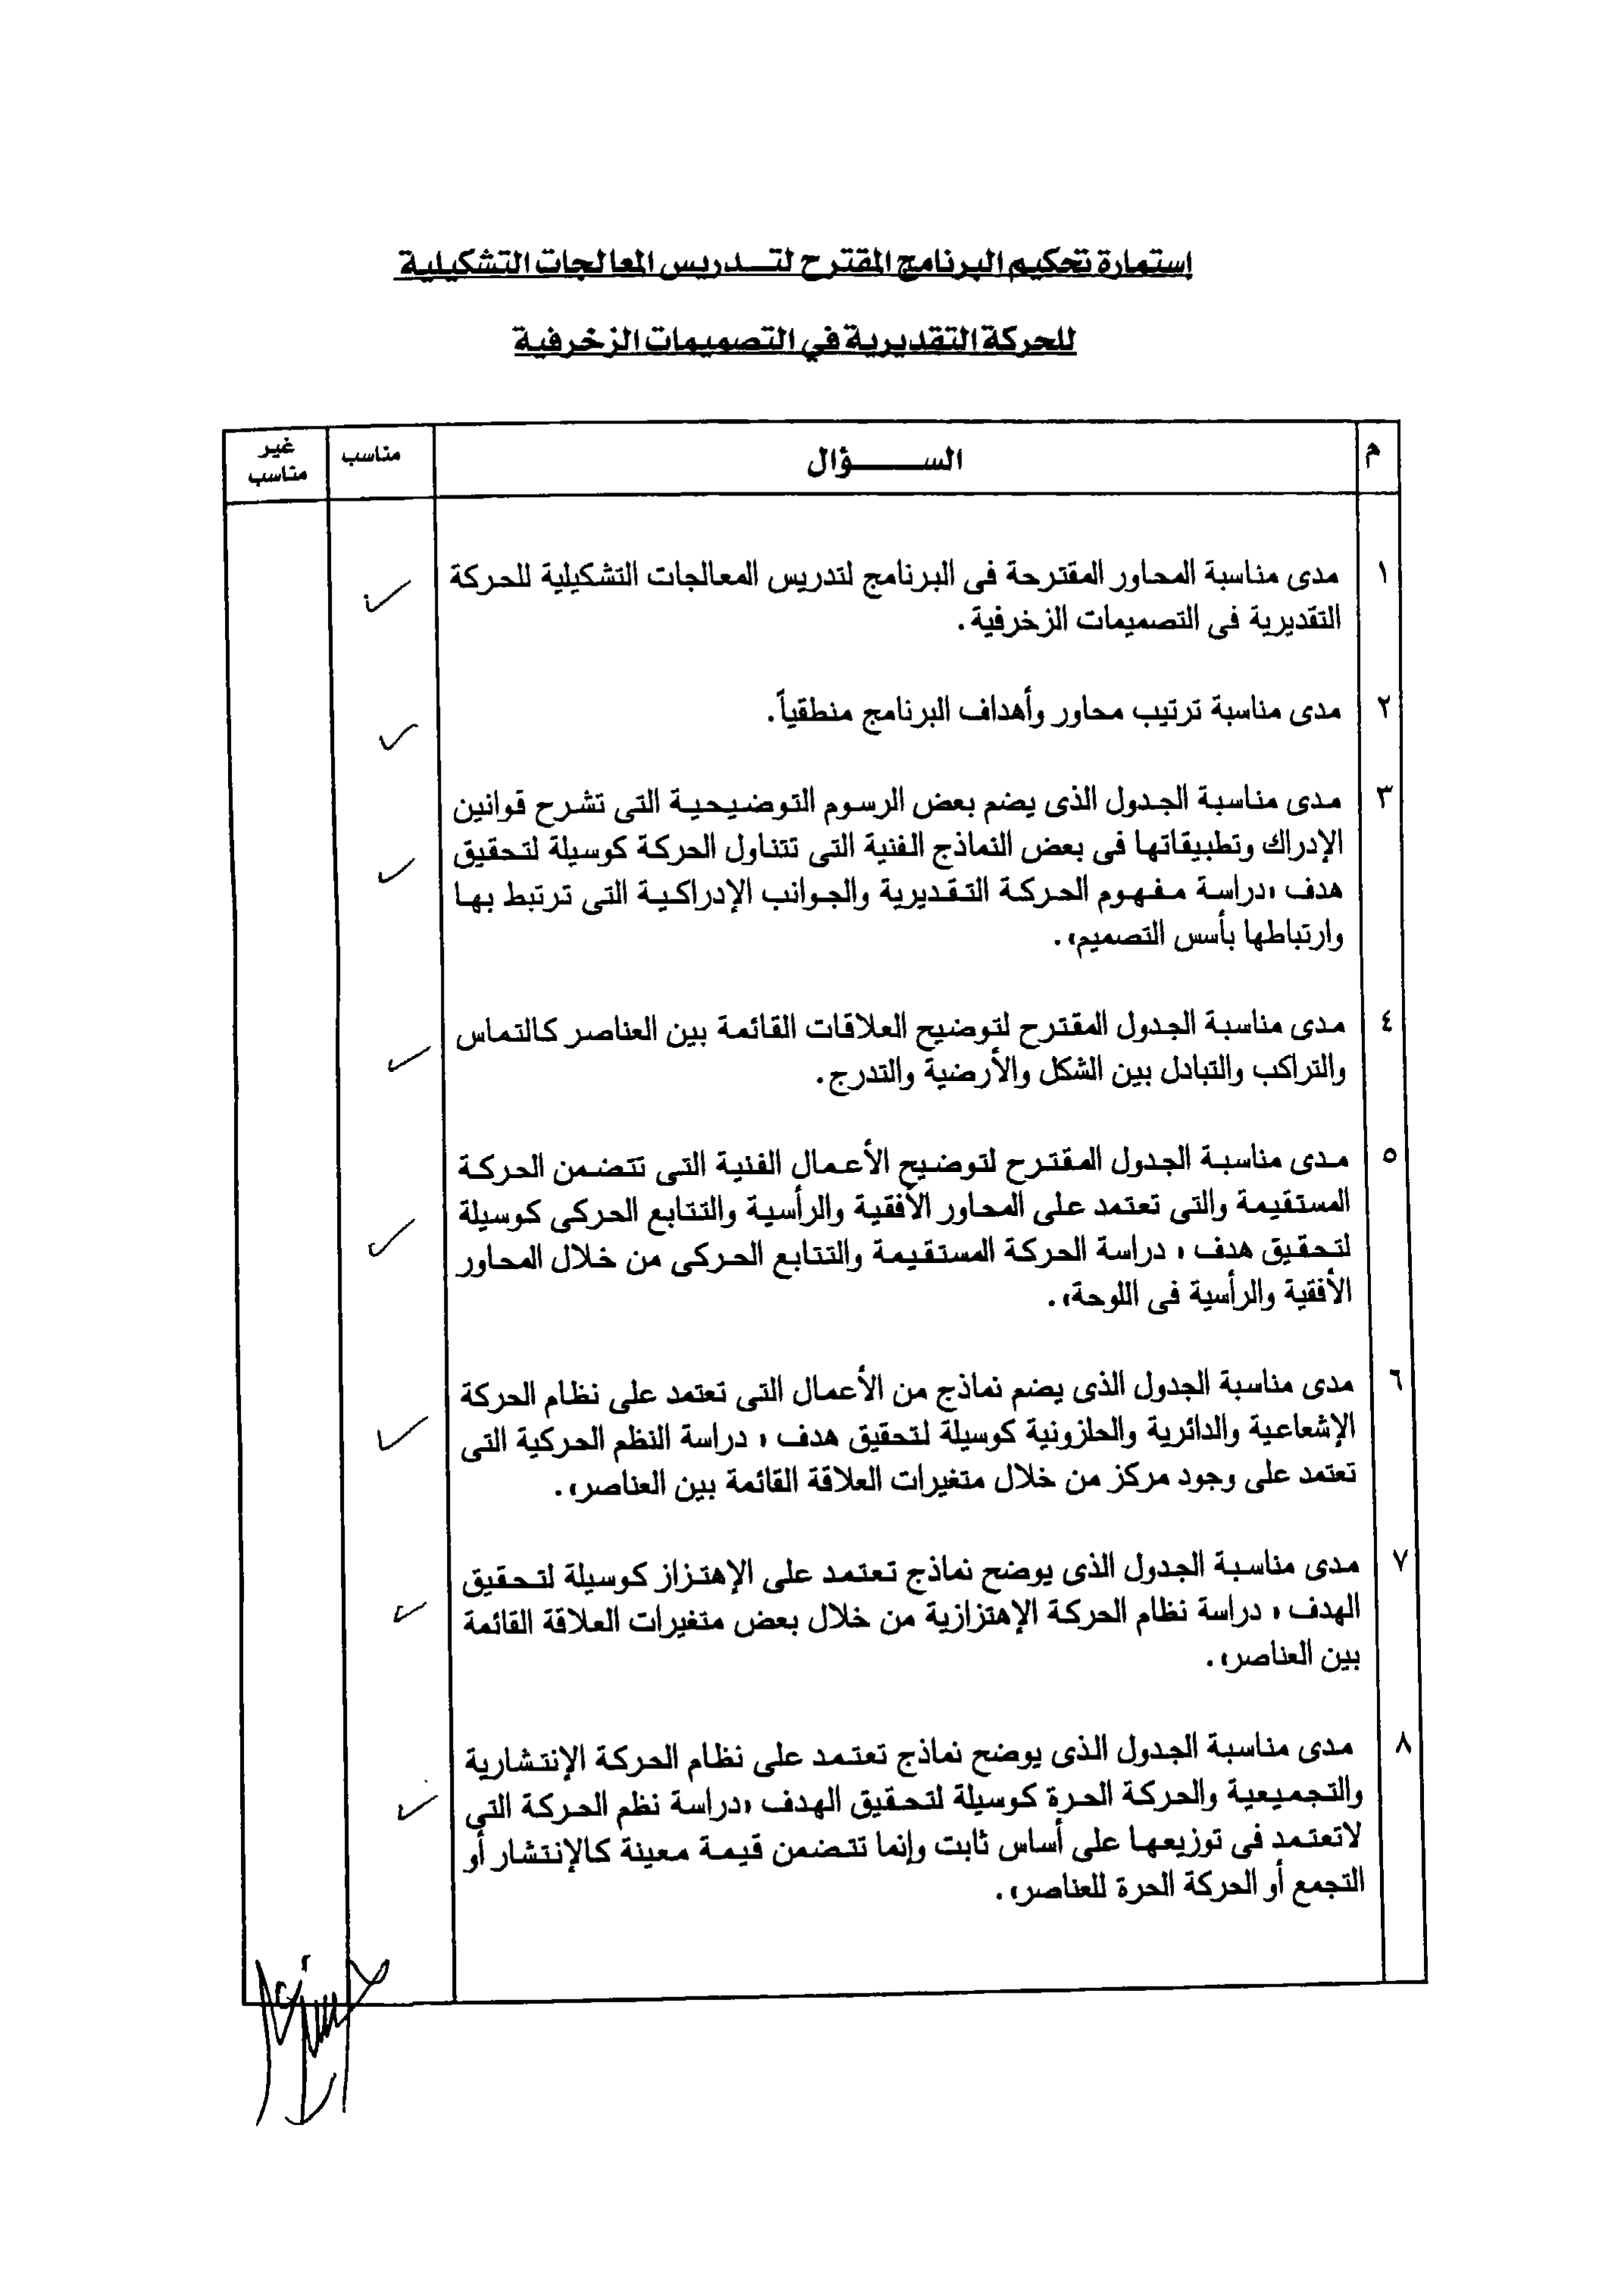 إستمارة تحكيم البرنامج المقترح لتــدريس المعالجات التشكيلية
للحركة التقديرية في التصميمات الزخرفية
م
الســـــــؤال
مناسب
غير
مناسب
١
مدى مناسبة المحاور المقترحة فى البرنامج لتدريس المعالجات التشكيلية للحركة
التقديرية فى التصميمات الزخرفية.
✓
٢
مدى مناسبة ترتيب محاور وأهداف البرنامج منطقياً.
✓
٣
مدى مناسبة الجدول الذى يضم بعض الرسوم التوضيحية التى تشرح قوانين
الإدراك وتطبيقاتها فى بعض النماذج الفنية التى تتناول الحركة كوسيلة لتحقيق
هدف «دراسة مفهوم الحركة التقديرية والجوانب الإدراكية التى ترتبط بها
وارتباطها بأسس التصميم».
✓
٤
مدى مناسبة الجدول المقترح لتوضيح العلاقات القائمة بين العناصر كالتماس
والتراكب والتبادل بين الشكل والأرضية والتدرج.
✓
٥
مدى مناسبة الجدول المقترح لتوضيح الأعمال الفنية التى تتضمن الحركة
المستقيمة والتى تعتمد على المحاور الأفقية والرأسية والتتابع الحركى كوسيلة
لتحقيق هدف « دراسة الحركة المستقيمة والتتابع الحركى من خلال المحاور
الأفقية والرأسية فى اللوحة».
✓
٦
مدى مناسبة الجدول الذى يضم نماذج من الأعمال التى تعتمد على نظام الحركة
الإشعاعية والدائرية والحلزونية كوسيلة لتحقيق هدف « دراسة النظم الحركية التى
تعتمد على وجود مركز من خلال متغيرات العلاقة القائمة بين العناصر».
✓
٧
مدى مناسبة الجدول الذى يوضح نماذج تعتمد على الإهتزاز كوسيلة لتحقيق
الهدف « دراسة نظام الحركة الإهتزازية من خلال بعض متغيرات العلاقة القائمة
بين العناصر».
✓
٨
مدى مناسبة الجدول الذى يوضح نماذج تعتمد على نظام الحركة الإنتشارية
والتجميعية والحركة الحرة كوسيلة لتحقيق الهدف «دراسة نظم الحركة التى
لاتعتمد فى توزيعها على أساس ثابت وإنما تتضمن قيمة معينة كالإنتشار أو
التجمع أو الحركة الحرة للعناصر».
✓